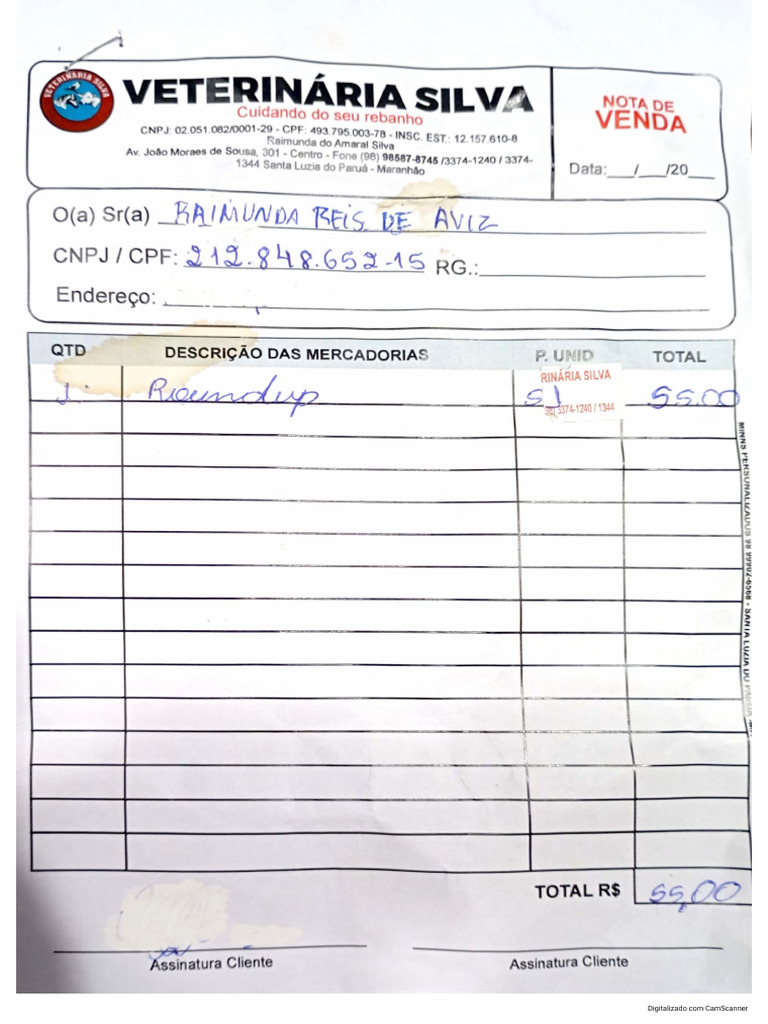 VETERINÁRIA SILVA
VETERINÁRIA SILVA
Cuidando do seu rebanho
CNPJ: 02.051.082/0001-29 - CPF: 493.795.003-78 - INSC. EST.: 12.157.610-8
Raimunda do Amaral Silva
Av. João Moraes de Sousa, 301 - Centro - Fone (98) 98587-8745 /3374-1240 / 3374-
1344 Santa Luzia do Paruá - Maranhão
NOTA DE
VENDA
Data:___/___/20___
O(a) Sr(a) RAIMUNDA REIS DE AVIZ
CNPJ / CPF: 212.848.652-15 RG.:
Endereço:
QTD DESCRIÇÃO DAS MERCADORIAS P. UNID TOTAL
1 Roundup 55.00
RINÁRIA SILVA
3374-1240 / 1344
MINNS PERSONALIZADOS 98
TOTAL R$ 55,00
Assinatura Cliente Assinatura Cliente
Digitalizado com CamScanner